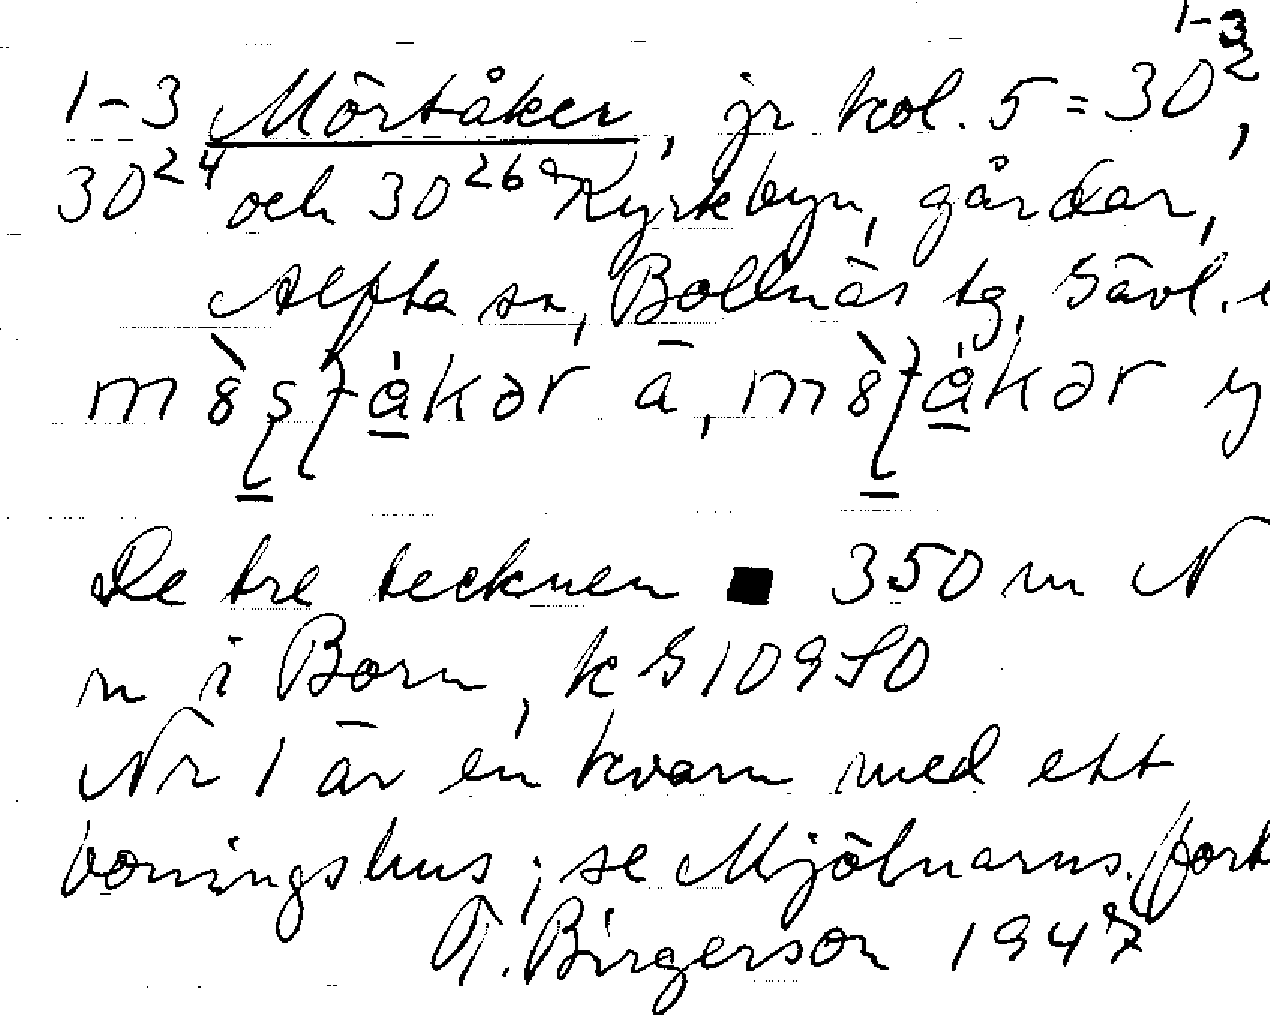 1-3
1-3 Mörtåker, jr kol. 5 = 30²,
30²⁴ och 30²⁶ᵃ Kyrkbyn, gårdar,
Alfta sn, Bollnäs tg, Gävl.
ā,
De tre tecknen ■ 350 m N
n i Born, k G 109 SO
Nr 1 är en kvarn med ett
boningshus; se Mjölnarns. fort
T. Birgerson 1947